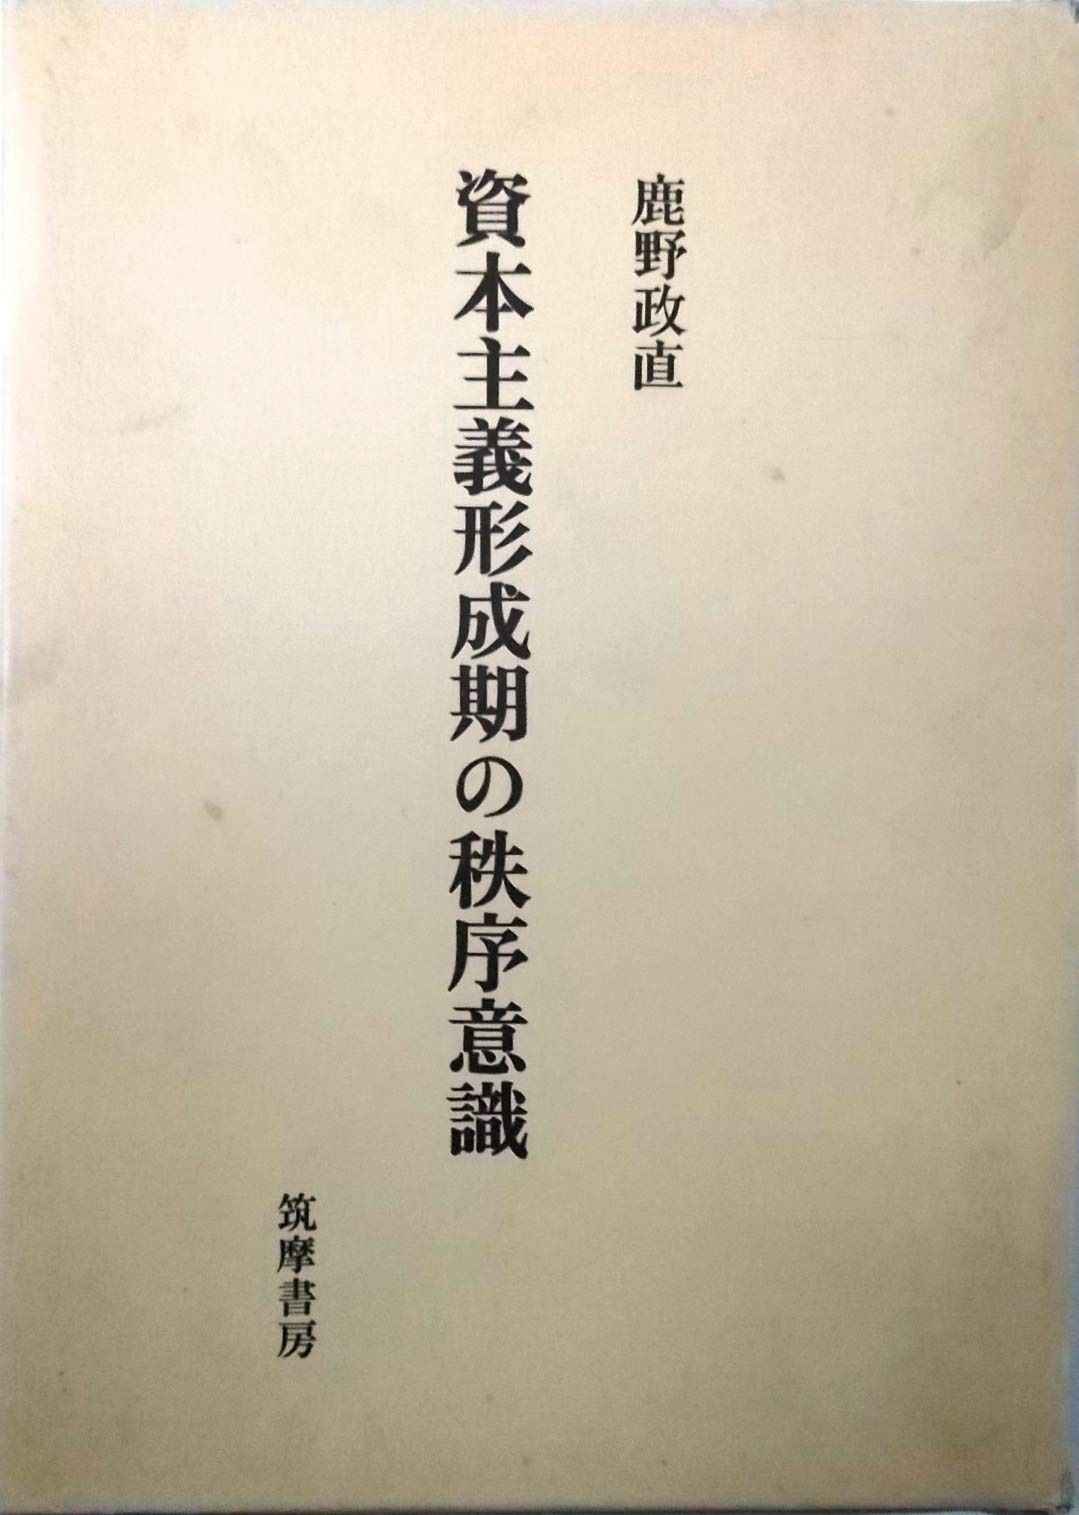 鹿野政直
資本主義形成期の秩序意識
筑摩書房